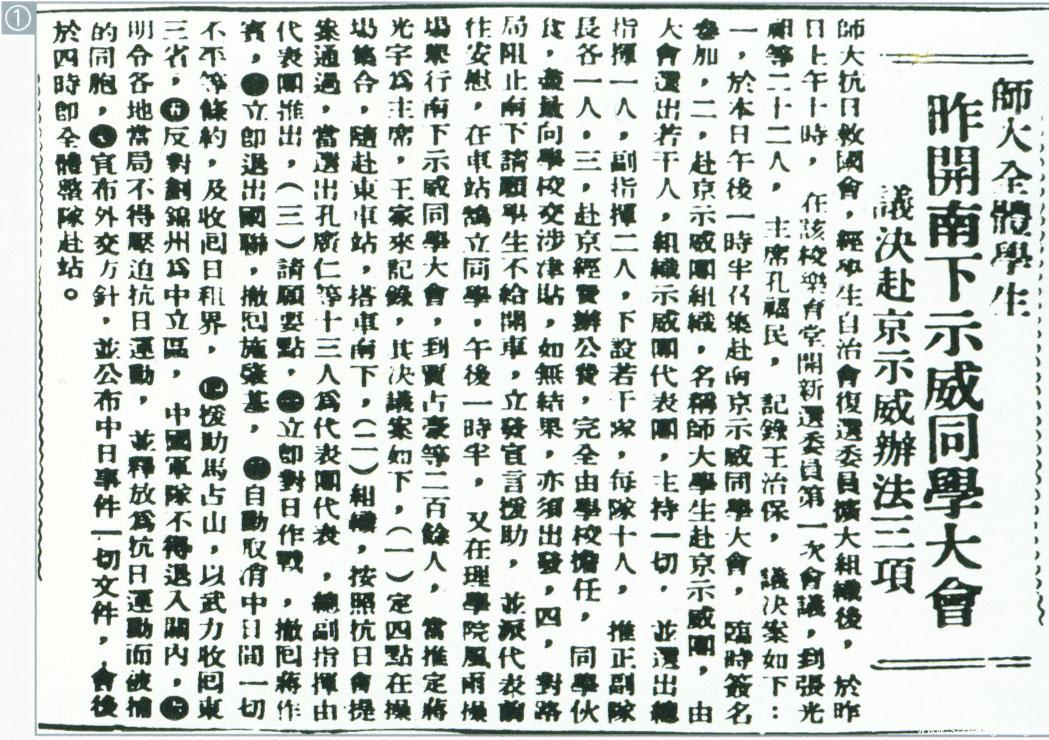 ①
師大全體學生
昨開南下示威同學大會
議決赴京示威辦法三項
師大抗日救國會，經學生自治會復選委員擴大組織後，於昨
日上午十時，在該校樂育堂開新選委員第一次會議，到張光
祖等二十二人，主席孔福民，記錄王治保，議決案如下：
一，於本日午後一時半召集赴南京示威同學大會，臨時簽名
參加，二，赴京示威團組織，名稱師大學生赴京示威團，由
大會選出若干人，組織示威團代表團，主持一切，並選出總
指揮一人，副指揮二人，下設若干隊，每隊十人，推正副隊
長各一人，三，赴京經費辦公費，完全由學校擔任，同學伙
食，盡量向學校交涉津貼，如無結果，亦須出發，四，對路
局阻止南下請願學生不給開車，立發宣言援助，並派代表前
往安慰，在車站鵠立同學，午後一時半，又在理學院風雨操
場舉行南下示威同學大會，到賈占豪等二百餘人，當推定蔣
光宇為主席，王家來記錄，其決議案如下，（一）定四點在操
場集合，隨赴東車站，搭車南下，（二）組織，按照抗日會提
案通過，當選出孔廣仁等十三人為代表團代表，總副指揮由
代表團推出，（三）請願要點，㊀立即對日作戰，撤囘蔣作
賓，㊁立即退出國聯，撤囘施肇基，㊂自動取消中日間一切
不平等條約，及收囘日租界，㊃援助馬占山，以武力收囘東
三省，㊄反對劃錦州為中立區，中國軍隊不得退入關內，㊅
明令各地當局不得壓迫抗日運動，並釋放為抗日運動而被捕
的同胞，㊆宣布外交方針，並公布中日事件一切文件，會後
於四時即全體整隊赴站。